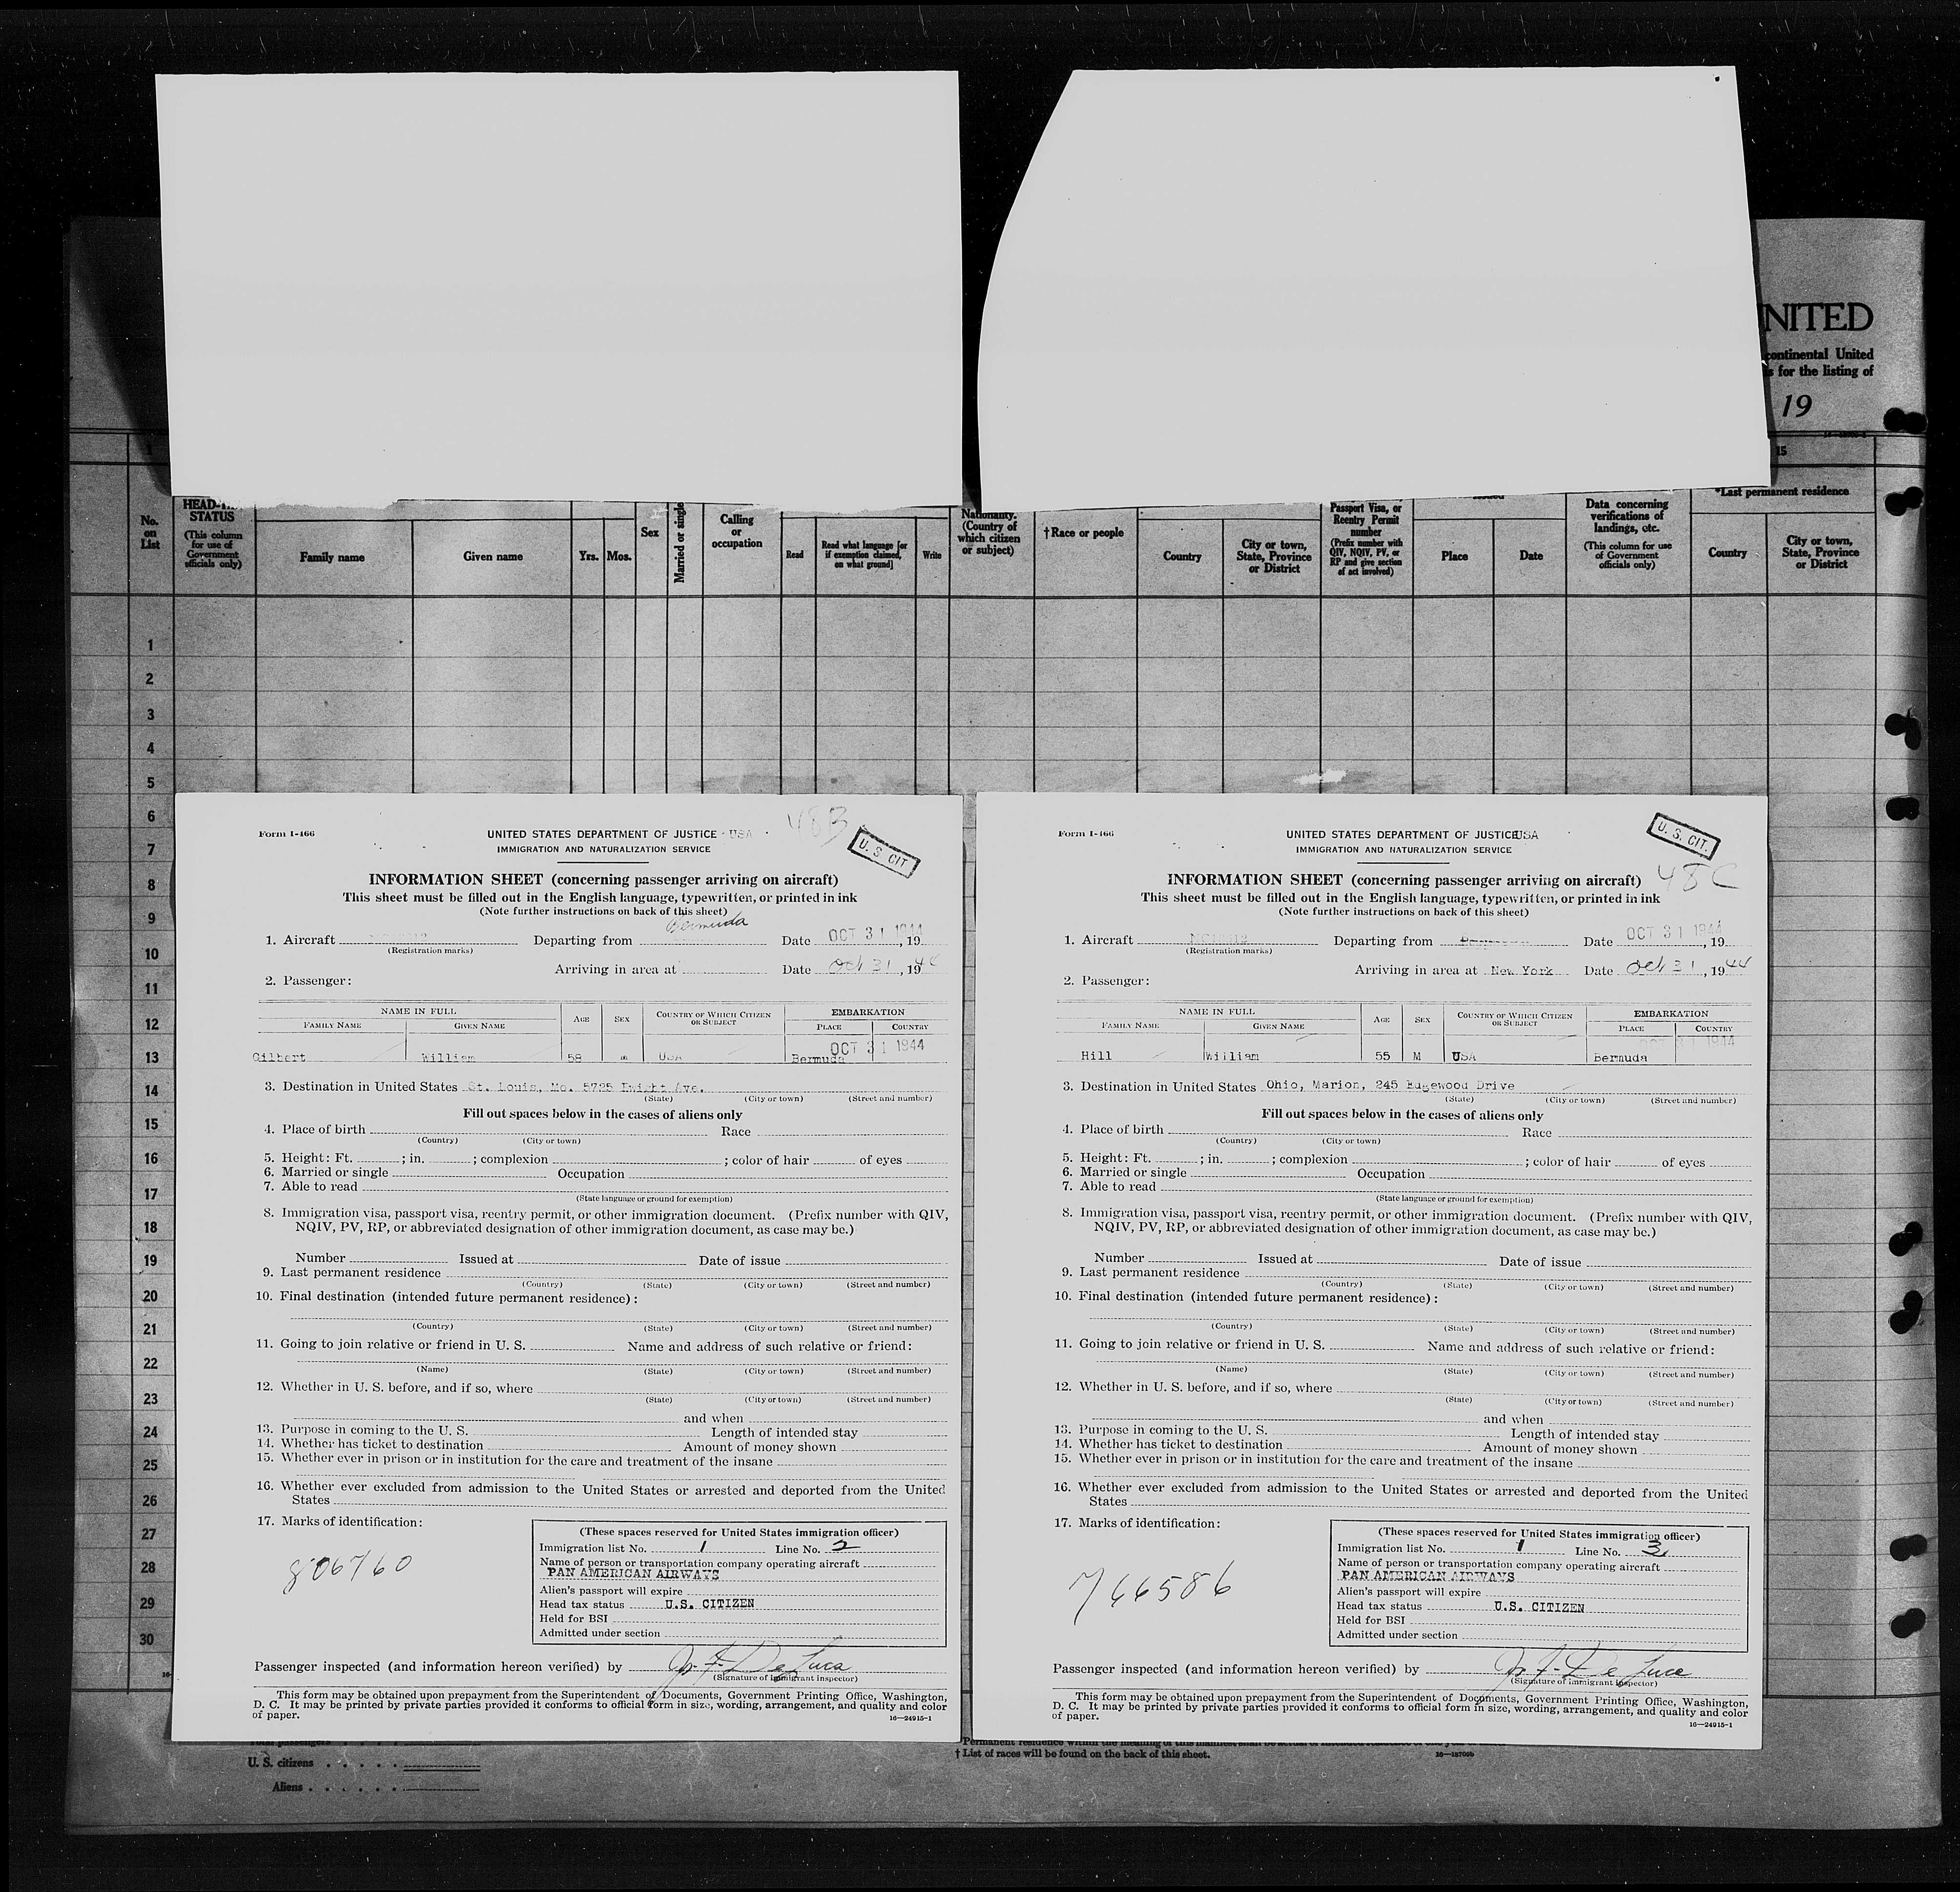 NITED
continental United
s for the listing of
19
15
No. on List
STATUS
(This column for use of Government officials only)
Family name
Given name
Yrs.
Mos.
Sex
Married or single
Calling or occupation
Read
Read what language [or if exemption claimed, on what ground]
Write
Nationality. (Country of which citizen or subject)
†Race or people
Country
City or town, State, Province or District
Passport Visa, or Reentry Permit number
(Prefix number with QIV, NQIV, PV, or RP and give section of act involved)
Place
Date
Data concerning verifications of landings, etc.
(This column for use of Government officials only)
*Last permanent residence
Country
City or town, State, Province or District
1
2
3
4
5
6
7
8
9
10
11
12
13
14
15
16
17
18
19
20
21
22
23
24
25
26
27
28
29
30
Form I-466
UNITED STATES DEPARTMENT OF JUSTICE USA
48B
U. S. CIT
IMMIGRATION AND NATURALIZATION SERVICE
INFORMATION SHEET (concerning passenger arriving on aircraft)
This sheet must be filled out in the English language, typewritten, or printed in ink
(Note further instructions on back of this sheet)
1. Aircraft Departing from Bermuda Date OCT 31 1944, 19
(Registration marks)
Arriving in area at Date Oct 31, 1944
2. Passenger:
NAME IN FULL
FAMILY NAME
GIVEN NAME
AGE
SEX
COUNTRY OF WHICH CITIZEN OR SUBJECT
EMBARKATION
PLACE
COUNTRY
OCT 31 1944
Gilbert William 58 m USA Bermuda
3. Destination in United States St. Louis, Mo. 5725 Dwight Ave.
(State) (City or town) (Street and number)
Fill out spaces below in the cases of aliens only
4. Place of birth Race
(Country) (City or town)
5. Height: Ft. ; in. ; complexion ; color of hair of eyes
6. Married or single Occupation
7. Able to read
(State language or ground for exemption)
8. Immigration visa, passport visa, reentry permit, or other immigration document. (Prefix number with QIV,
NQIV, PV, RP, or abbreviated designation of other immigration document, as case may be.)
Number Issued at Date of issue
9. Last permanent residence
(Country) (State) (City or town) (Street and number)
10. Final destination (intended future permanent residence):
(Country) (State) (City or town) (Street and number)
11. Going to join relative or friend in U. S. Name and address of such relative or friend:
(Name) (State) (City or town) (Street and number)
12. Whether in U. S. before, and if so, where
(State) (City or town) (Street and number)
and when
13. Purpose in coming to the U. S. Length of intended stay
14. Whether has ticket to destination Amount of money shown
15. Whether ever in prison or in institution for the care and treatment of the insane
16. Whether ever excluded from admission to the United States or arrested and deported from the United
States
17. Marks of identification:
806760
(These spaces reserved for United States immigration officer)
Immigration list No. 1 Line No. 2
Name of person or transportation company operating aircraft
PAN AMERICAN AIRWAYS
Alien's passport will expire
Head tax status U.S. CITIZEN
Held for BSI
Admitted under section
Passenger inspected (and information hereon verified) by
(Signature of immigrant inspector)
This form may be obtained upon prepayment from the Superintendent of Documents, Government Printing Office, Washington,
D. C. It may be printed by private parties provided it conforms to official form in size, wording, arrangement, and quality and color
of paper.
16—24915-1
Form I-466
UNITED STATES DEPARTMENT OF JUSTICE USA
U. S. CIT.
IMMIGRATION AND NATURALIZATION SERVICE
48C
INFORMATION SHEET (concerning passenger arriving on aircraft)
This sheet must be filled out in the English language, typewritten, or printed in ink
(Note further instructions on back of this sheet)
1. Aircraft Departing from Date OCT 31 1944, 19
(Registration marks)
Arriving in area at New York Date Oct 31, 1944
2. Passenger:
NAME IN FULL
FAMILY NAME
GIVEN NAME
AGE
SEX
COUNTRY OF WHICH CITIZEN OR SUBJECT
EMBARKATION
PLACE
COUNTRY
OCT 31 1944
Hill William 55 M USA Bermuda
3. Destination in United States Ohio, Marion, 245 Edgewood Drive
(State) (City or town) (Street and number)
Fill out spaces below in the cases of aliens only
4. Place of birth Race
(Country) (City or town)
5. Height: Ft. ; in. ; complexion ; color of hair of eyes
6. Married or single Occupation
7. Able to read
(State language or ground for exemption)
8. Immigration visa, passport visa, reentry permit, or other immigration document. (Prefix number with QIV,
NQIV, PV, RP, or abbreviated designation of other immigration document, as case may be.)
Number Issued at Date of issue
9. Last permanent residence
(Country) (State) (City or town) (Street and number)
10. Final destination (intended future permanent residence):
(Country) (State) (City or town) (Street and number)
11. Going to join relative or friend in U. S. Name and address of such relative or friend:
(Name) (State) (City or town) (Street and number)
12. Whether in U. S. before, and if so, where
(State) (City or town) (Street and number)
and when
13. Purpose in coming to the U. S. Length of intended stay
14. Whether has ticket to destination Amount of money shown
15. Whether ever in prison or in institution for the care and treatment of the insane
16. Whether ever excluded from admission to the United States or arrested and deported from the United
States
17. Marks of identification:
766586
(These spaces reserved for United States immigration officer)
Immigration list No. 1 Line No. 3
Name of person or transportation company operating aircraft
PAN AMERICAN AIRWAYS
Alien's passport will expire
Head tax status U.S. CITIZEN
Held for BSI
Admitted under section
Passenger inspected (and information hereon verified) by
(Signature of immigrant inspector)
This form may be obtained upon prepayment from the Superintendent of Documents, Government Printing Office, Washington,
D. C. It may be printed by private parties provided it conforms to official form in size, wording, arrangement, and quality and color
of paper.
16—24915-1
U. S. citizens
Aliens
† List of races will be found on the back of this sheet.